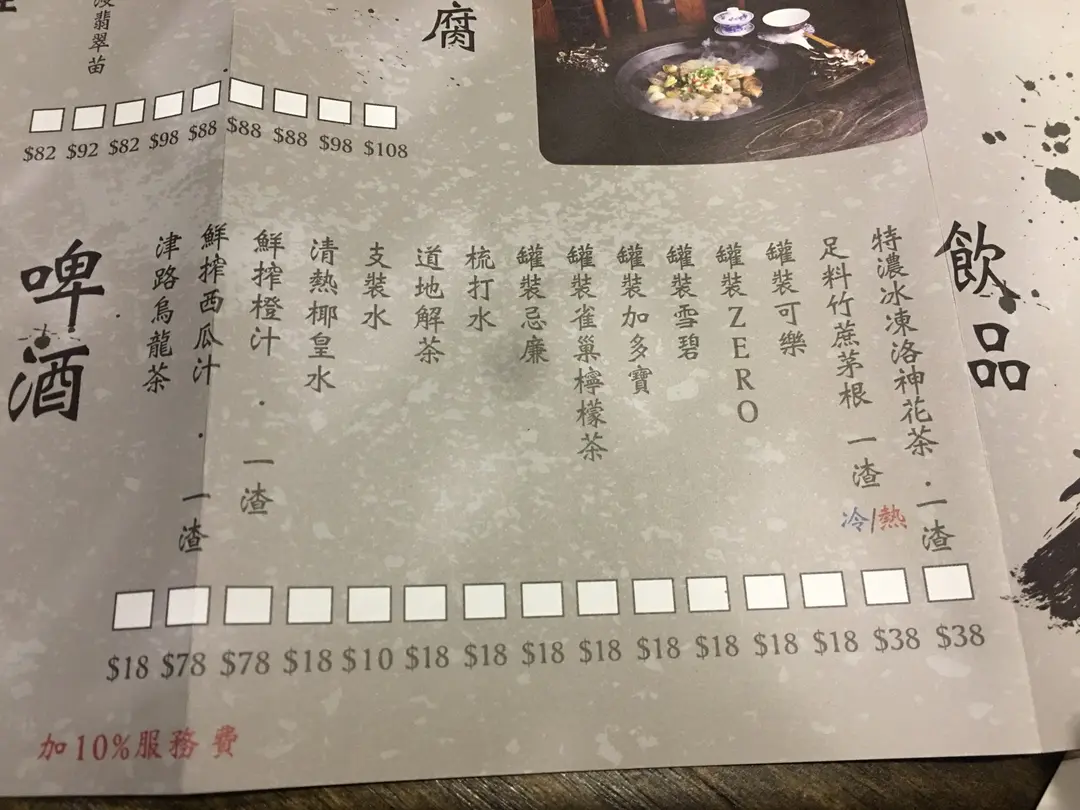 腐
翡翠苗
$82 $92 $82 $98 $88 $88 $88 $98 $108
飲品
特濃冰凍洛神花茶．一渣
足料竹蔗茅根 一渣
冷/熱
罐裝可樂
罐裝ZERO
罐裝雪碧
罐裝加多寶
罐裝雀巢檸檬茶
罐裝忌廉
梳打水
道地解茶
支裝水
清熱椰皇水
鮮搾橙汁．一渣
鮮搾西瓜汁．一渣
津路烏龍茶
啤酒
$18 $78 $78 $18 $10 $18 $18 $18 $18 $18 $18 $18 $18 $38 $38
加10%服務費